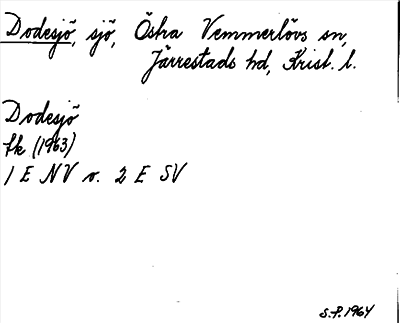 Dodesjö, sjö, Östra Vemmerlövs sn,
Järrestads hd, Krist. l.
Dodesjö
fk (1963)
1 E NV o. 2 E SV
S.P. 1964